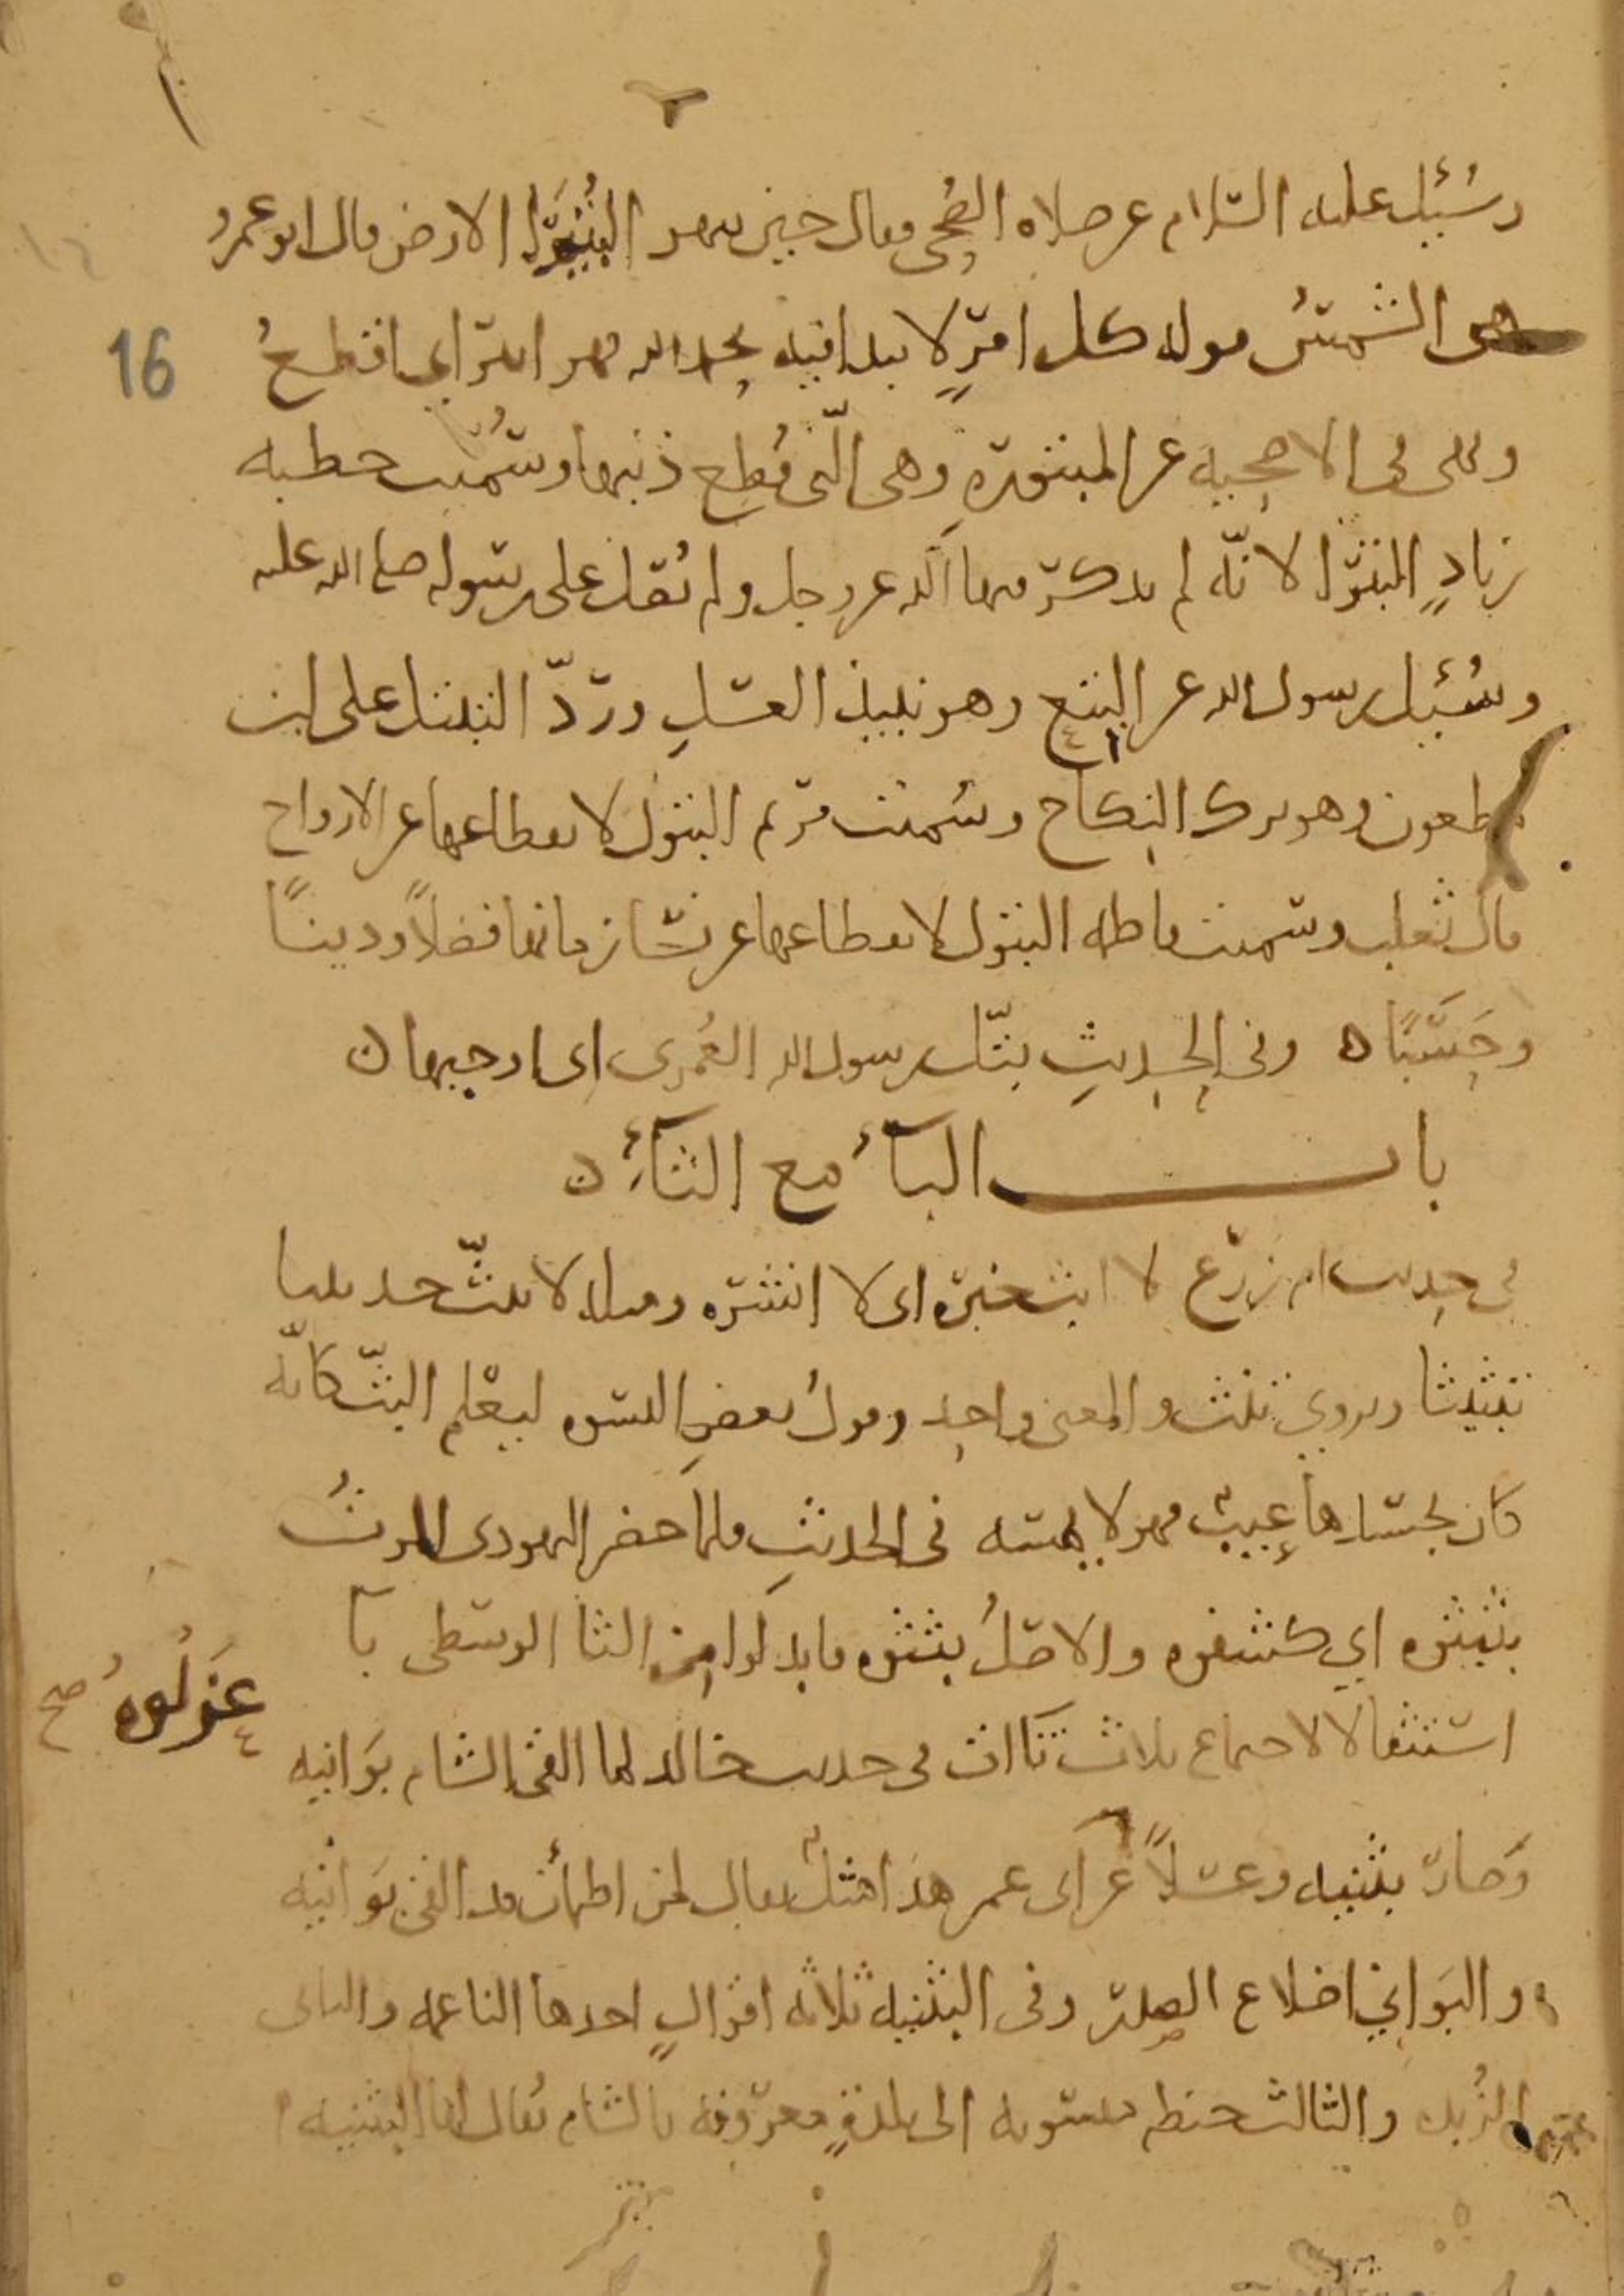 وسُئِل عليه السّلام عن صلاه الضُحى فقال حين تبهر البُتَيْراء الارض قال ابو عمرو
هى الشمسُ قوله كل امرٍ لا يبدا فيه بحمد الله فهو ابتر اى اقطعُ
ونهى فى الاضحيه عن المبتورةِ وهى الّتى قُطِع ذنبها وسُمّيت خطبه
زيادٍ البترا لانّه لم يذكر فيها الله عز وجل ولم يُصل على رسوله صلى الله عليه
وسُئِل رسول الله عن البتع وهو نبيذ العسلِ وردّ التبتل على ابن
مطعون وهو ترك النكاح وسُميت مريم البتول لانقطاعها عن الازواج
قال ثعلب وسميت فاطمه البتول لانقطاعها عن نسا زمانها فضلاً ودينًا
وحَسَبًا ه وفى الحديثِ بتّل رسول الله العُمرى اى اوجبها ن
باب البآء مع الثآء ن
فى حديث ام زرع لا ابث خبره اى لا انشره ومثله لا تبثّ حديثنا
تبثيثا ويروى تنث والمعنى واحد وقولُ بعضِ النسوه ليعْلم البثّ كانّه
كان بجسدها عيبٌ فهو لا يمسه فى الحديثِ فلما حضر اليهودى الموتُ
بثبثوه اي كشفوه والاصلُ بثثوه فابدلوا من الثا الوسطى با
استثقالا لاجتماع ثلاث ثاات فى حديث خالد لما القى الشام بوَانيه
عَزلُوهُ صح
وَصار بثنيه وعسلاً عزلنى عمر هذا مثلٌ يقال لمن اطمأن قد القى بوَانيه
والبوَاني اضلاع الصدر وفى البثنيه ثلاثه اقوالٍ احدها الناعمه والثانى
الزُبده والثالث حنطه منسوبه الى بلدةٍ معروفه بالشام يُقال لها البثنيه
16